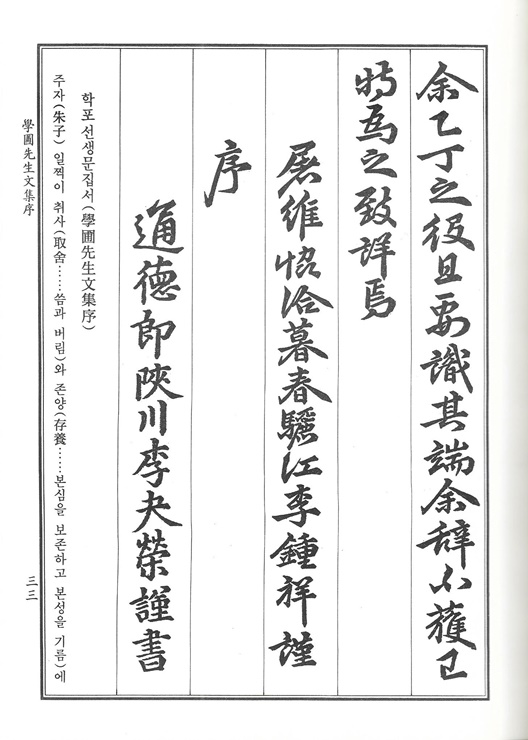 余乙丁之役且要識其端余辭不獲已
特爲之致詳焉
屠維協洽暮春驪江李鍾祥謹
序
通德郎陜川李夫榮謹書
학포 선생문집서(學圃先生文集序)
주자(朱子) 일찍이 취사(取舍……씀과 버림)와 존양(存養……본심을 보존하고 본성을 기름)에
學圃先生文集序
三三